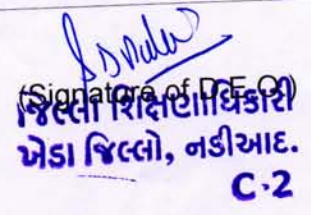 (Signature of D.E.O.)
જિલ્લા શિક્ષણાધિકારી
ખેડા જિલ્લો, નડીઆદ.
C-2